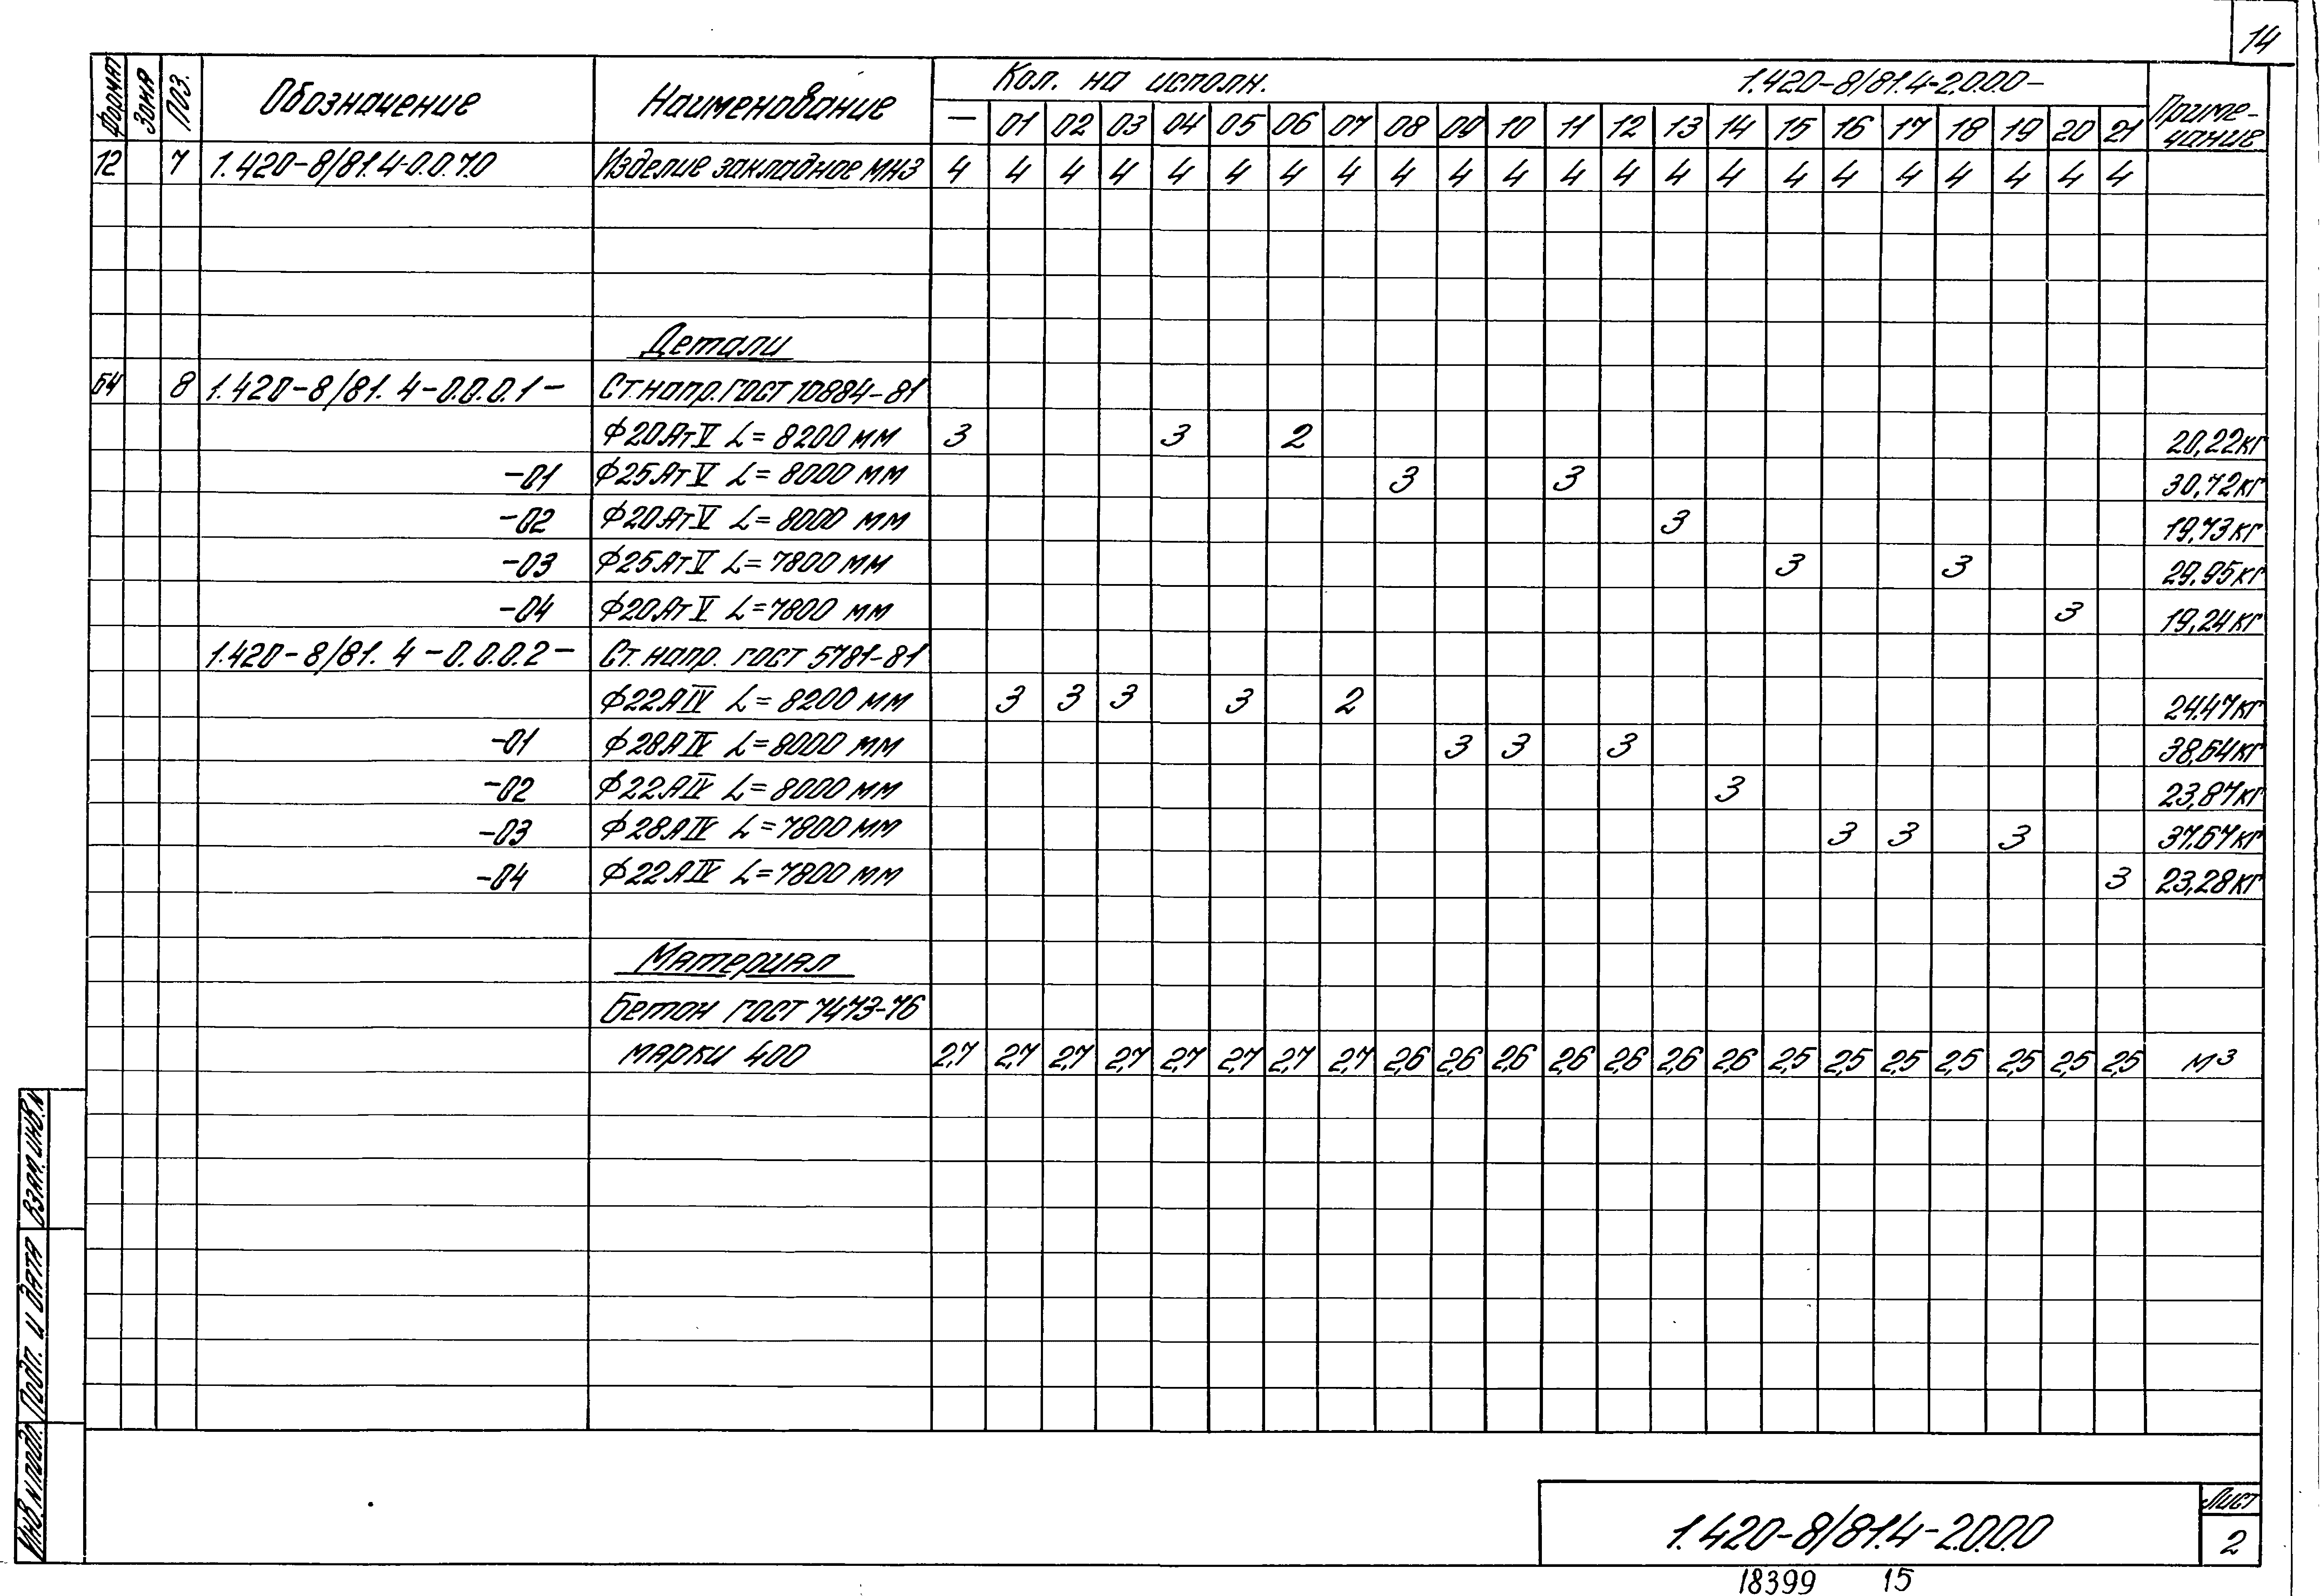 14
Формат Зона Поз. Обозначение Наименование Кол. на исполн. 1.420-8/81.4-2.0.0.0- Приме-
чание
— 01 02 03 04 05 06 07 08 09 10 11 12 13 14 15 16 17 18 19 20 21
12 7 1.420-8/81.4-0.0.7.0 Изделие закладное МН3 4 4 4 4 4 4 4 4 4 4 4 4 4 4 4 4 4 4 4 4 4 4
Детали
Б4 8 1.420-8/81.4-0.0.0.1- Ст.напр.ГОСТ 10884-81
Ф20АтV L=8200 мм 3 3 2 20,22кг
-01 Ф25АтV L=8000 мм 3 3 30,72кг
-02 Ф20АтV L=8000 мм 3 19,73кг
-03 Ф25АтV L=7800 мм 3 3 29,95кг
-04 Ф20АтV L=7800 мм 3 19,24кг
1.420-8/81.4-0.0.0.2- Ст.напр. ГОСТ 5781-81
Ф22АIV L=8200 мм 3 3 3 3 2 24,47кг
-01 Ф28АIV L=8000 мм 3 3 3 38,64кг
-02 Ф22АIV L=8000 мм 3 23,87кг
-03 Ф28АIV L=7800 мм 3 3 3 37,67кг
-04 Ф22АIV L=7800 мм 3 23,28кг
Материал
Бетон ГОСТ 7473-76
марки 400 2,7 2,7 2,7 2,7 2,7 2,7 2,7 2,7 2,6 2,6 2,6 2,6 2,6 2,6 2,6 2,5 2,5 2,5 2,5 2,5 2,5 2,5 м³
Взам.инв.N
Подп. и дата
Инв.N подл.
1.420-8/81.4-2.0.0.0
Лист
2
18399 15